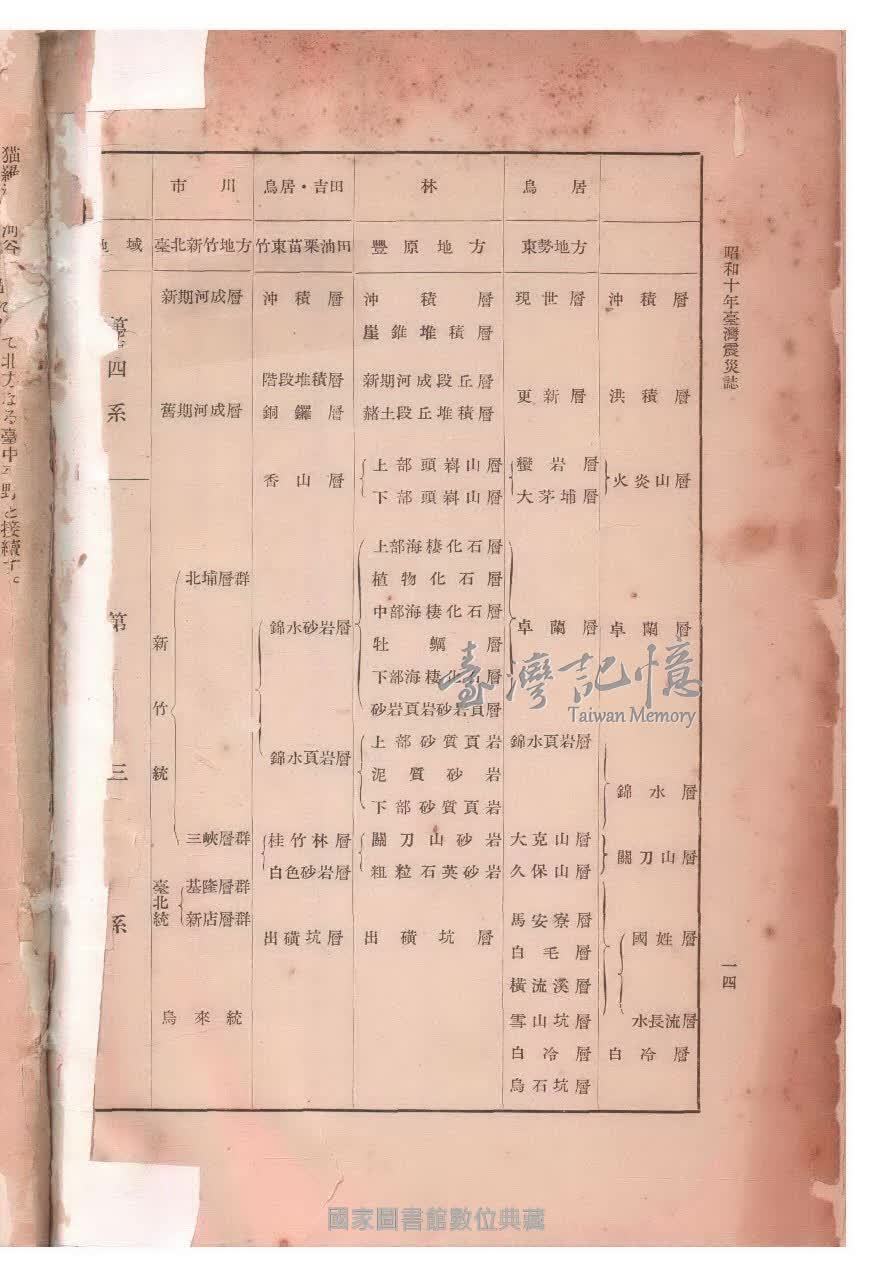 昭和十年臺灣震災誌
一四
鳥居
東勢地方
林
豐原地方
鳥居・吉田
竹東苗栗油田
市川
臺北新竹地方
域
沖積層
洪積層
火炎山層
卓蘭層
錦水層
關刀山層
國姓層
水長流層
白冷層
現世層
更新層
蠻岩層
大茅埔層
卓蘭層
錦水頁岩層
大克山層
久保山層
馬安寮層
白毛層
橫流溪層
雪山坑層
白冷層
烏石坑層
沖積層
崖錐堆積層
新期河成段丘層
赭土段丘堆積層
上部頭嵙山層
下部頭嵙山層
上部海棲化石層
植物化石層
中部海棲化石層
牡蠣層
下部海棲化石層
砂岩頁岩砂岩頁層
上部砂質頁岩
泥質砂岩
下部砂質頁岩
關刀山砂岩
粗粒石英砂岩
出磺坑層
沖積層
階段堆積層
銅鑼層
香山層
錦水砂岩層
錦水頁岩層
桂竹林層
白色砂岩層
出磺坑層
新期河成層
舊期河成層
新竹統
北埔層群
三峽層群
臺北統
基隆層群
新店層群
烏來統
第四系
第三系
て北方なる臺中
野と接續す。
臺灣記憶
Taiwan Memory
國家圖書館數位典藏